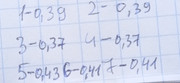 1-0,39 2-0,39
3-0,37 4-0,37
5-0,43 6-0,41 7-0,41